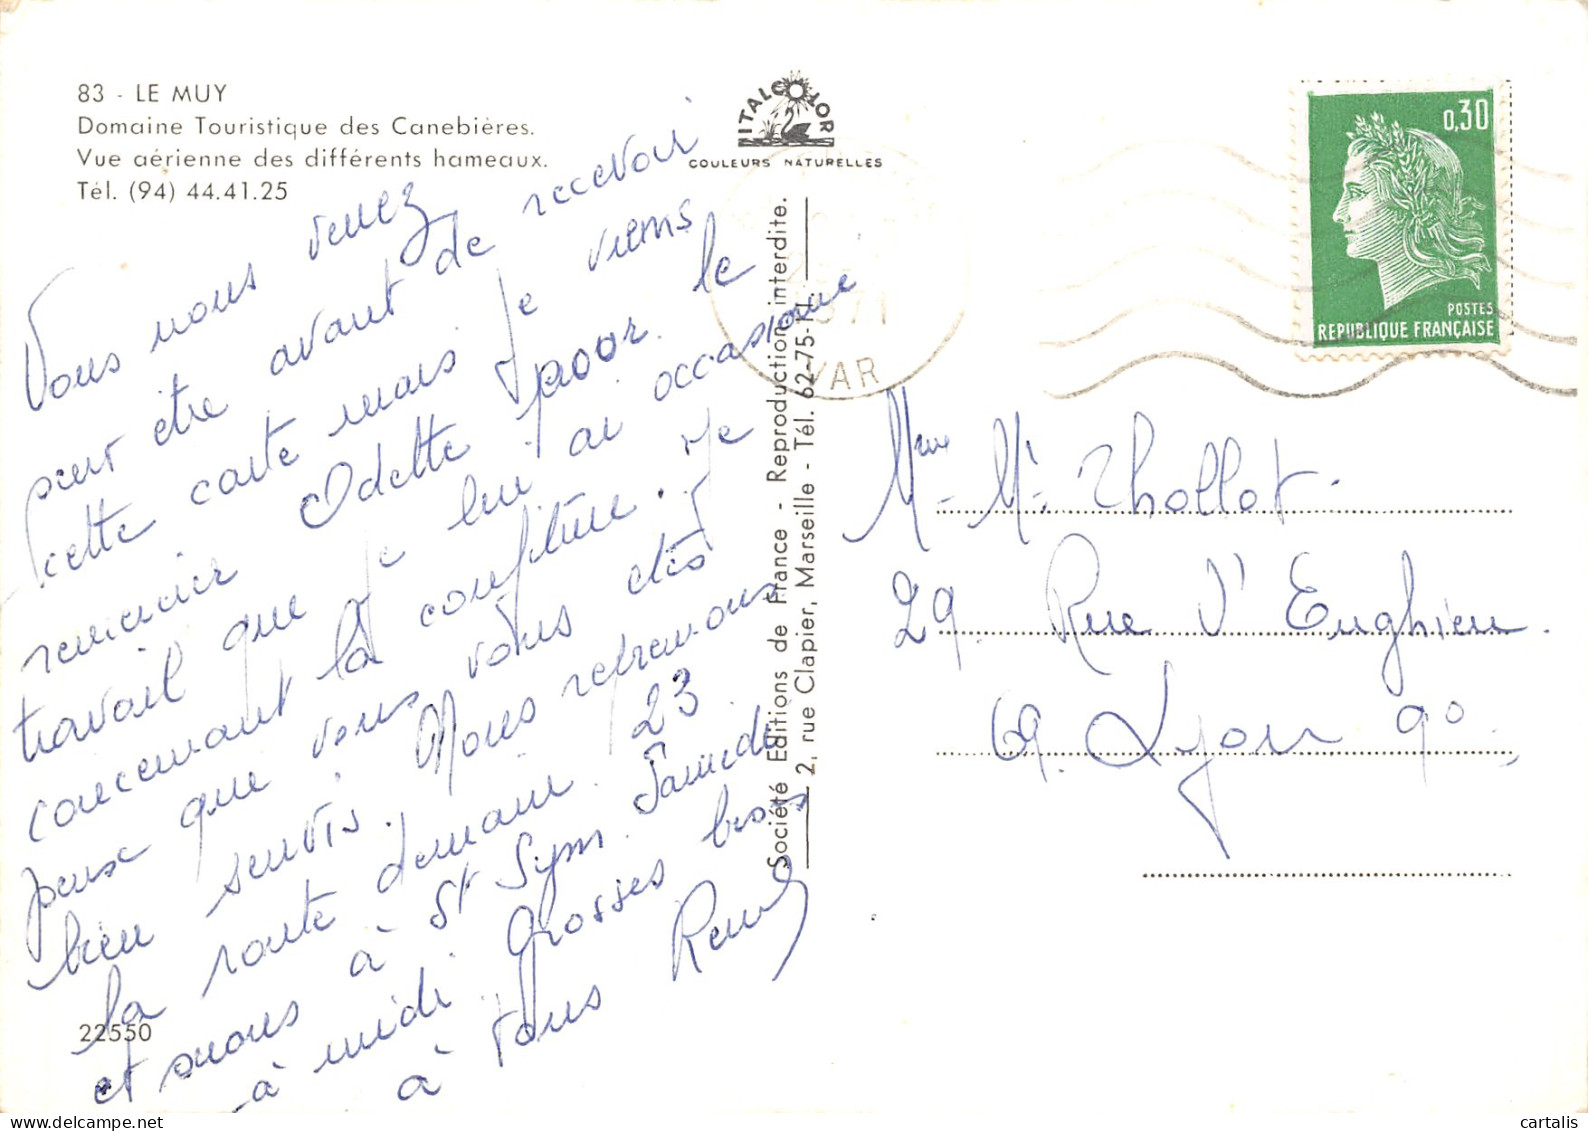 83 - LE MUY
Domaine Touristique des Canebières.
Vue aérienne des différents hameaux.
Tél. (94) 44.41.25
ITALCOLOR
COULEURS NATURELLES
0,30
POSTES
REPUBLIQUE FRANÇAISE
VAR
Société Editions de France - Reproduction interdite.
2, rue Clapier, Marseille - Tél. 62-75-11.
Vous nous venez
peut être avant de recevoir
cette carte mais je viens
remercier Odette pour le
travail que je lui ai occasionné
concernant la confiture. Je
peux que vous vous etes
bien servis. Nous reprenons
la route demain 23
et nous à St Sym. Samedi
à midi. Grosses bises
à tous René
22550
Mme Mr Thollot.
29. Rue d'Enghien.
69. Lyon 9°.
cartalis